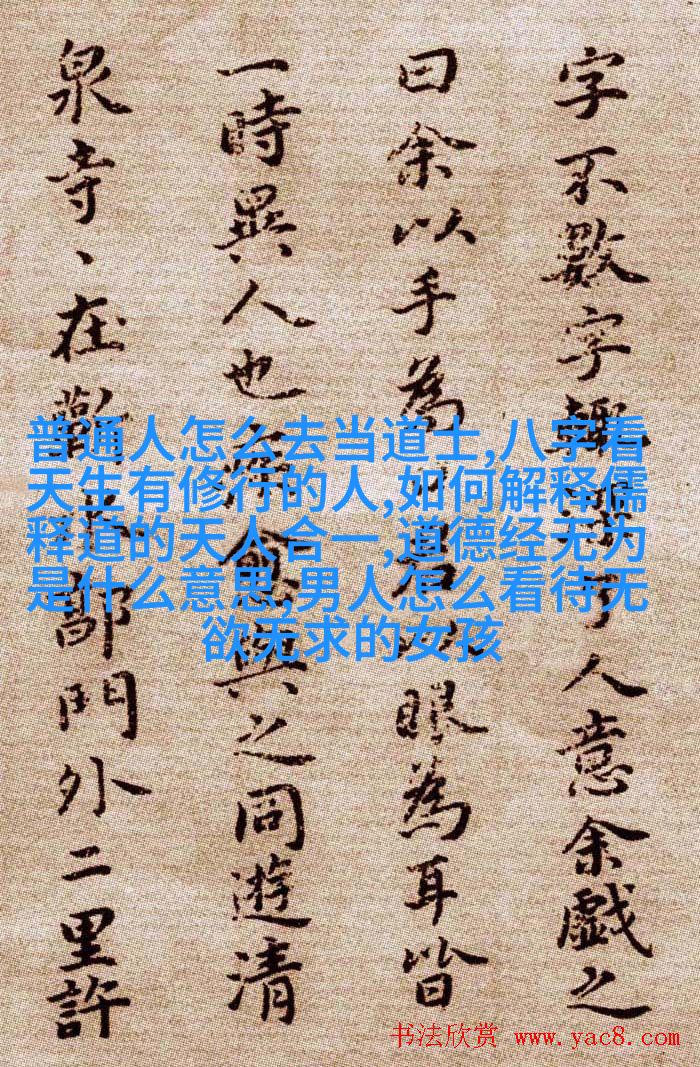 字不數字輒了人意余戲之
曰余以手為君以眼為耳皆
一時異人也疾愈與之同遊清
泉寺、在蘄郭門外二里許
普通人怎么去当道士,八字看
天生有修行的人,如何解释儒
释道的天人合一,道德经无为
是什么意思,男人怎么看待无
欲无求的女孩
书法欣赏 www.yac8.com